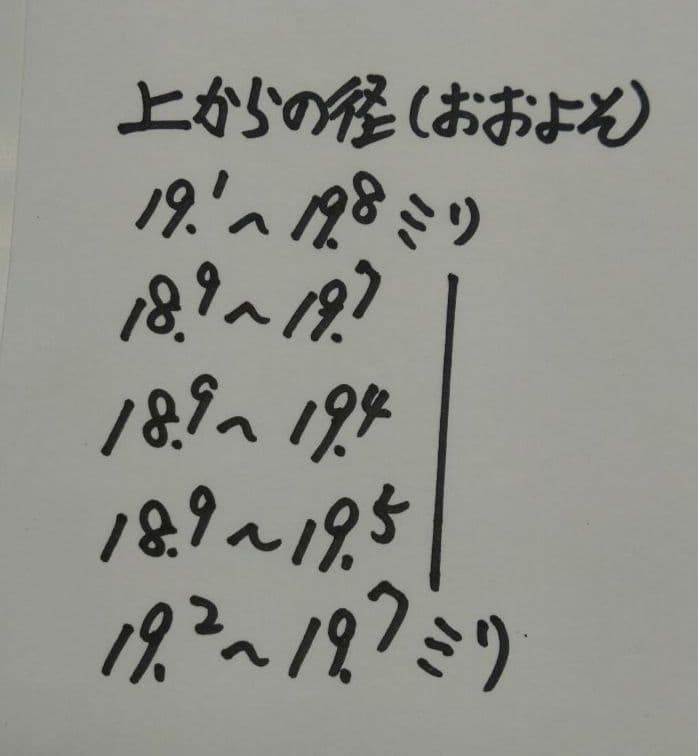 上からの径(おおよそ)
19.1〜19.8ミリ
18.9〜19.7
18.9〜19.4
18.9〜19.5
19.2〜19.7ミリ